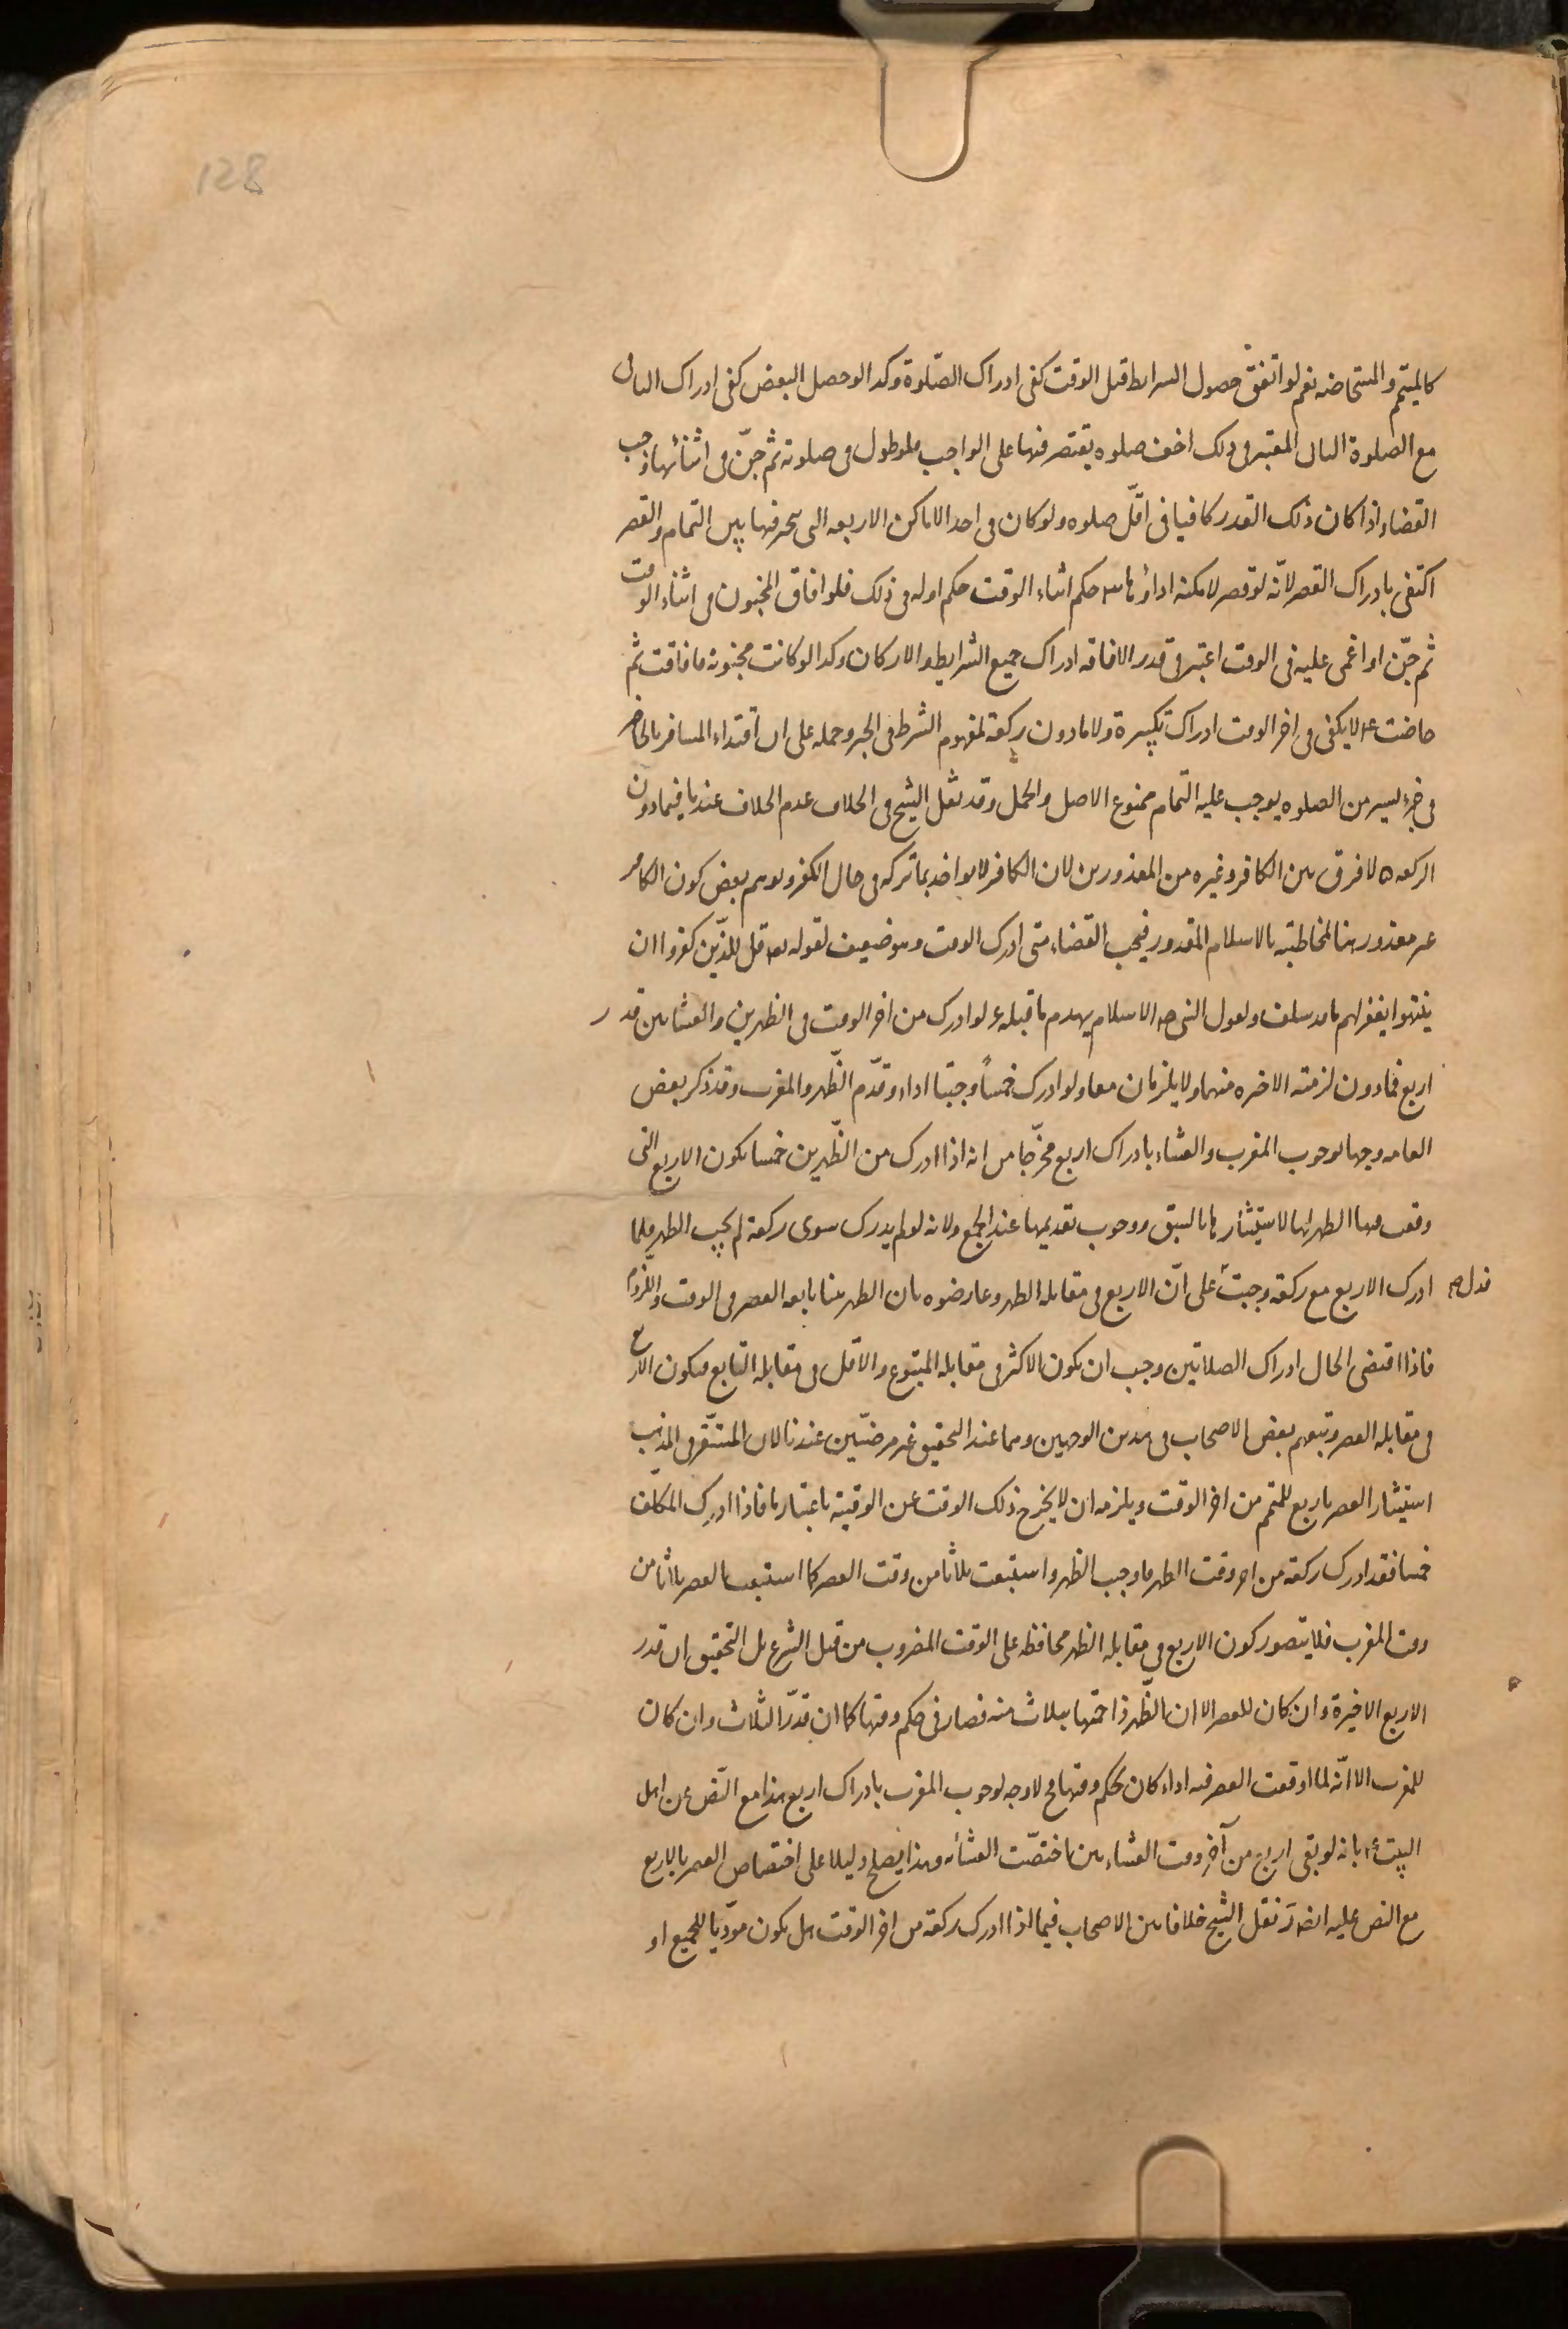 158
كالمتيمم والمستحاضه نعم لو اتفق حصول الشرايط قبل الوقت كفى ادراك الصلوة وكذا لو حصل البعض كفى ادراك الباقى
مع الصلوة الثانى المعتبر فى ذلك اخف صلوه يقتصر فيها على الواجب فلو طول فى صلوته ثم جنّ فى اثنائها وجب
القضاء اذا كان ذلك القدر كافيا فى اقلّ صلوه ولو كان فى احد الاماكن الاربعه التى يتخير فيها بين التمام والقصر
اكتفى بادراك القصر لانّه لو قصر لامكنه اداؤها ٣ حكم اثناء الوقت حكم اوله فى ذلك فلو افاق المجنون فى اثناء الوقت
ثم جنّ او اغمى عليه فى الوقت اعتبر فى قدر الافاقه ادراك جميع الشرايط والاركان وكذا لو كانت مجنونة فافاقت ثم
حاضت ٤ لا يكفى فى اخر الوقت ادراك تكبيرة ولا ما دون ركعة لمفهوم الشرط فى الخبر وحمله على ان اقتداء المسافر بالحاضر
فى جزء يسير من الصلوه يوجب عليه التمام ممنوع الاصل والحمل وقد نقل الشيخ فى الخلاف عدم الخلاف عندنا فيما دون
الركعه ٥ لا فرق بين الكافر وغيره من المعذورين لان الكافر لا يواخذ بما تركه فى حال الكفر وتوهم بعض كون الكافر
غير معذور هنا لمخاطبته بالاسلام المقدور فيجب القضاء متى ادرك الوقت وهو ضعيف لقوله تعه قل للذين كفروا ان
ينتهوا يغفر لهم ما قد سلف ولقول النبى صه الاسلام يهدم ما قبله ٦ لو ادرك من اخر الوقت فى الظهرين والعشائين قدر
اربع فما دون لزمته الاخيره منهما ولا يلزمان معا ولو ادرك خمساً وجبتا اداء وقدّم الظّهر والمغرب وقد ذكر بعض
العامه وجها لوجوب المغرب والعشاء بادراك اربع مخرّجا من انه اذا ادرك من الظّهرين خمسا تكون الاربع التى
وقعت فيها الظهر لها لاستيثارها بالسبق ووجوب تقديمها عند الجمع ولانه لو لم يدرك سوى ركعة لم يجب الظهر فلما
ادرك الاربع مع ركعة وجبت على انّ الاربع فى مقابله الظهر وعارضوه بان الظهر هنا تابعه العصر فى الوقت واللزوم
فدل صح
فاذا اقتضى الحال ادراك الصلاتين وجب ان يكون الاكثر فى مقابله المتبوع والاقل فى مقابله التابع فيكون الاربع
فى مقابله العصر وتبعهم بعض الاصحاب فى هذين الوجهين وهما عند التحقيق غير مرضيّين عندنا لان المستقرّ فى المذهب
استيثار العصر باربع للمتمّ من اخر الوقت ويلزمه ان لا يخرج ذلك الوقت عن الوقتية باعتبارها فاذا ادرك المكلّف
خمسا فقد ادرك ركعة من اخر وقت الظهر فاوجب الظهر واستتبعت ثلاثا من وقت العصر كما استتبعت العصر ثلاثا من
وقت المغرب فلا يتصور كون الاربع فى مقابله الظهر محافظه على الوقت المضروب من قبل الشرع بل التحقيق ان قدر
الاربع الاخيرة وان كان للعصر الا ان الظّهر زاحمتها بثلاث منه فصار فى حكم وقتها كما ان قدر الثلاث وان كان
للمغرب الا انّه لما اوقعت العصر فيه اداء كان بحكم وقتها ح ولا وجه لوجوب المغرب بادراك اربع هذا مع النّص عن اهل
البيت ع بانه لو بقى اربع من آخر وقت العشاءين اختصّت العشاء به وهذا يصلح دليلا على اختصاص العصر بالاربع
مع النص عليه ايضه ز نقل الشيخ خلافا بين الاصحاب فيما اذا ادرك ركعة من اخر الوقت هل يكون مودّيا للجميع او